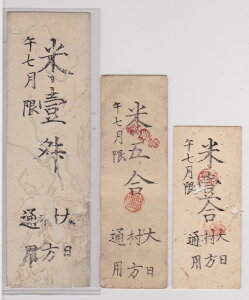 米壹舛
午七月限
大日
村方
通用
米五合
午七月限
大日
村方
通用
米壹合
午七月限
大日
村方
通用